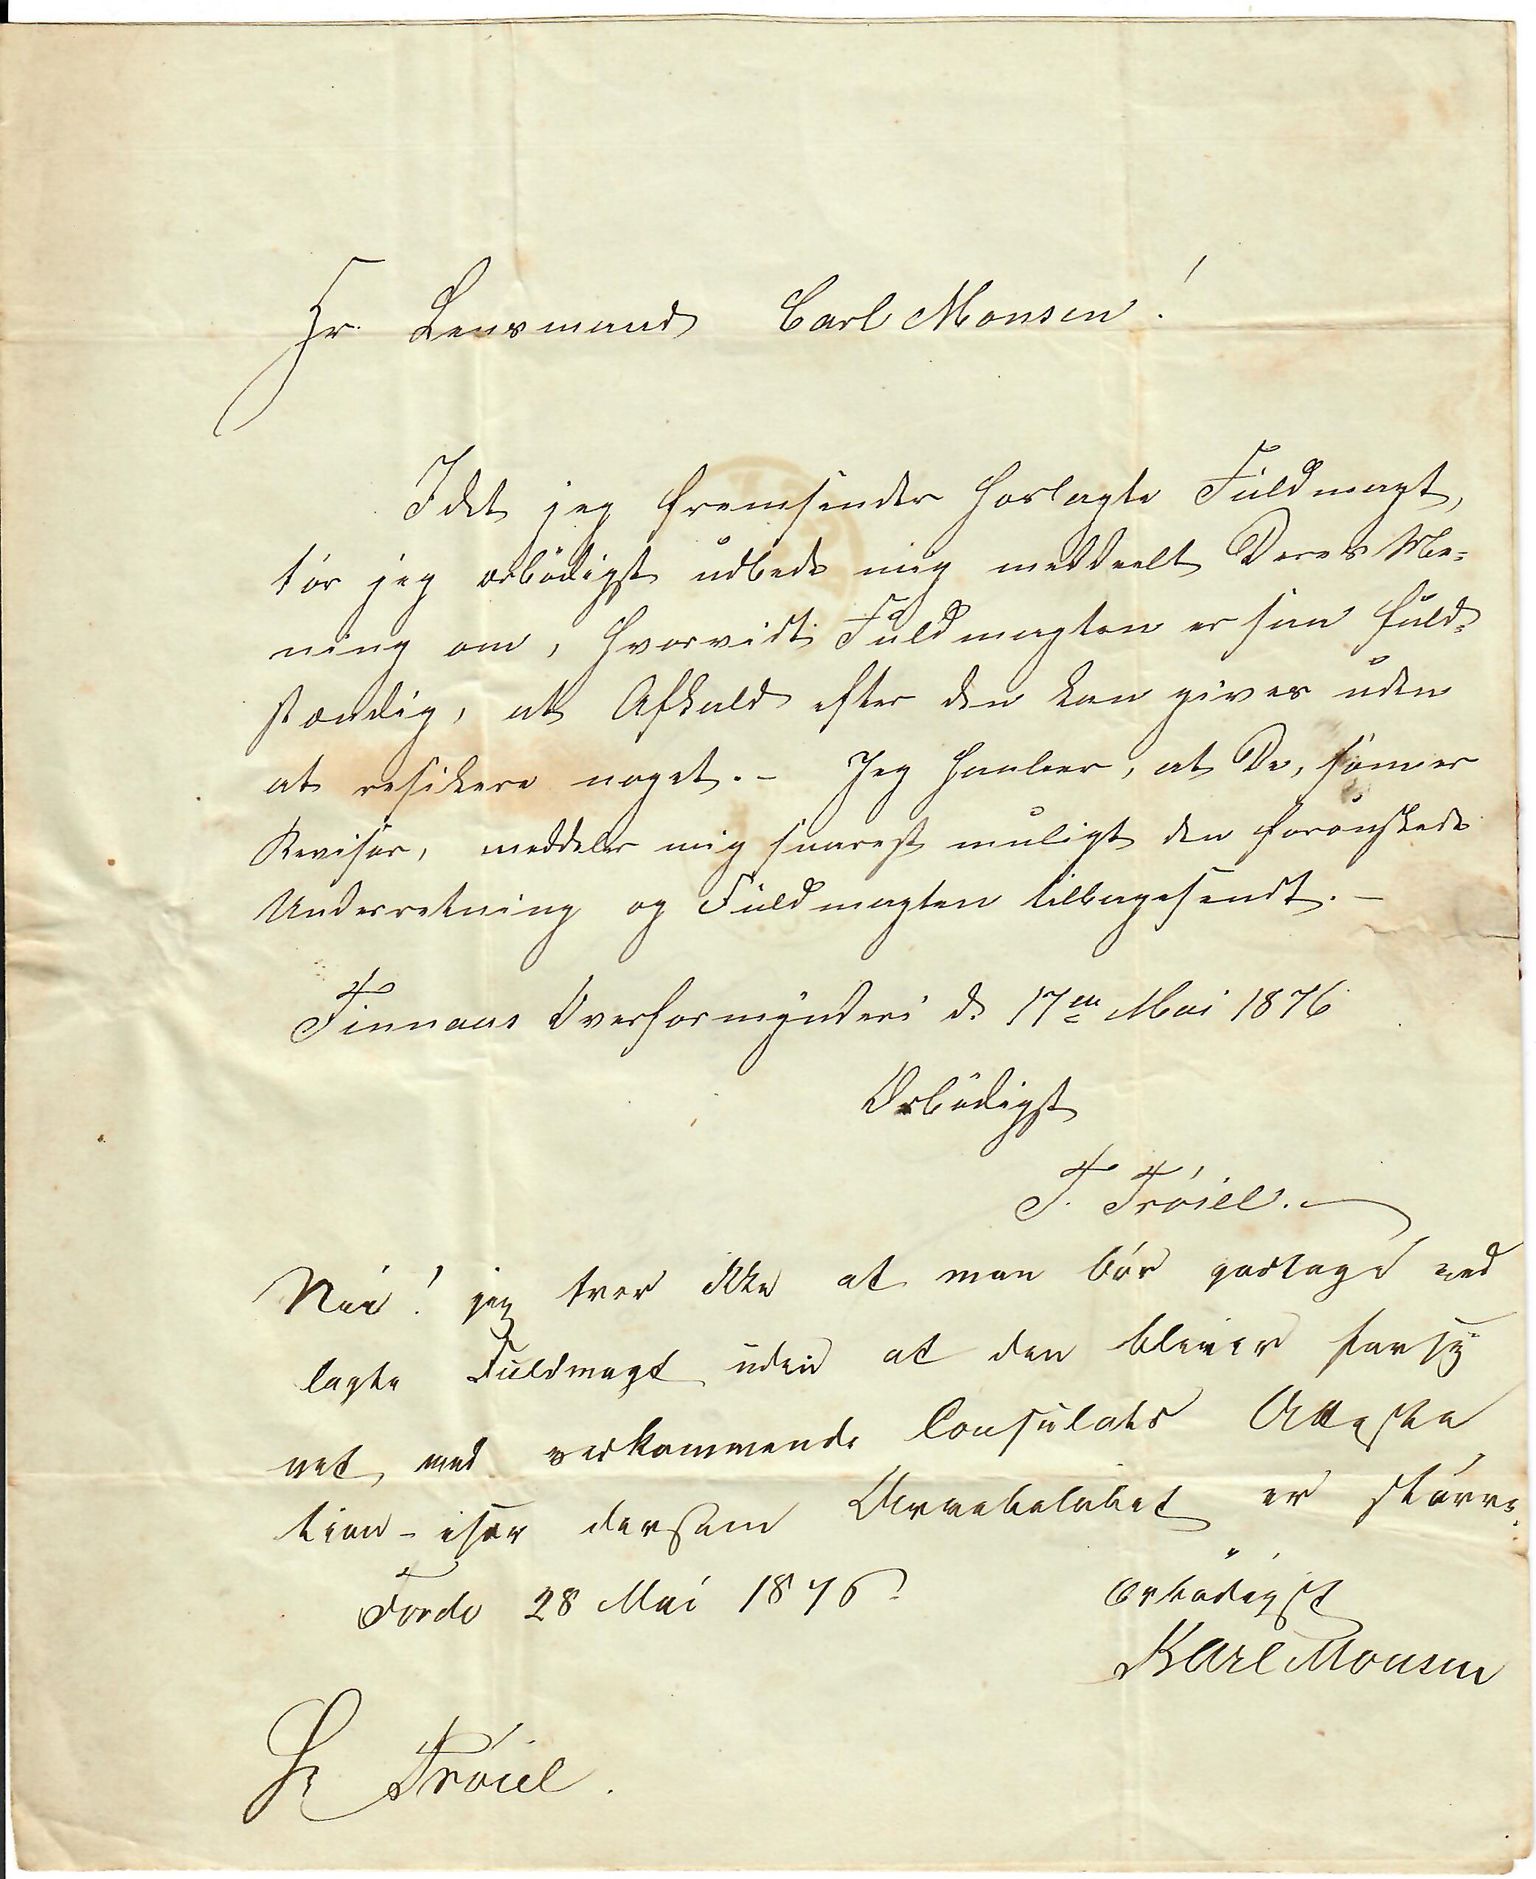 Hr. Lensmand Carl Monsen!
Idet jeg fremsender hoslagte Fuldmagt,
tør jeg ærbødigst udbede mig meddeelt Deres Me-
ning om, hvorvidt Fuldmagten er saa fuld-
stændig, at Afkald efter den kan gives uden
at resikere noget. – Jeg haaber, at De, som er
Revisor, meddeler mig snarest muligt den forønskede
Underretning og Fuldmagten tilbagesendt. –
Finnaas Overformynderi d. 17en Mai 1876
Ærbødigst
T. Trøiel.
Nei! jeg tror ikke at man bør godtage ved
lagte Fuldmagt uden at den bliver forsy
net med vedkommende Consulats Attesta
tion – især dersom Arvebeløbet er større.
Førde 28 Mai 1876.
Ærbødigst
Karl Monsen
Hr Trøiel.